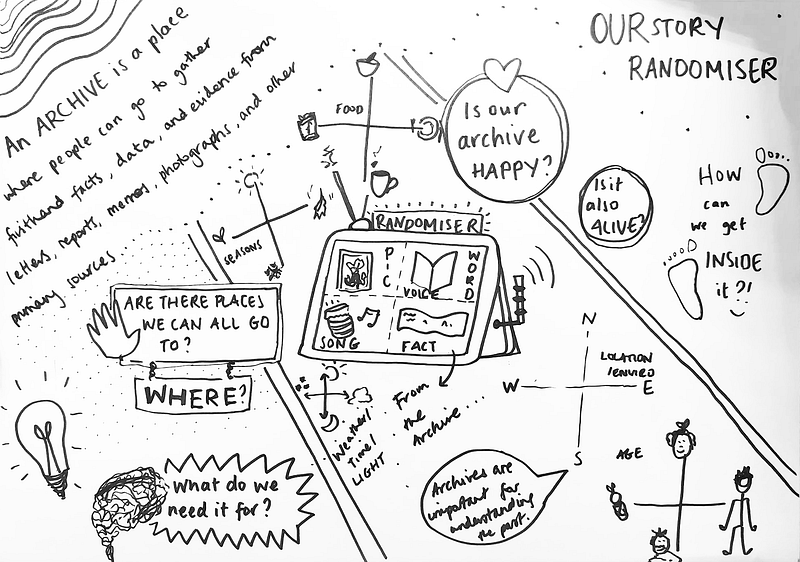 OUR STORY
RANDOMISER
An ARCHIVE is a place
where people can go to gather
firsthand facts, data, and evidence from
letters, reports, memos, photographs, and other
primary sources
FOOD
Is our
archive
HAPPY?
Is it
also
ALIVE?
HOW
can
we get
INSIDE
it?!
SEASONS
RANDOMISER
PIC
WORD
VOICE
SONG
FACT
ARE THERE PLACES
WE CAN ALL GO
TO?
WHERE?
From
the
Archive....
Weather/
Time/
LIGHT
N
LOCATION
/ENVIRO
W
E
S
AGE
What do we
need it for?
Archives are
important for
understanding
the past.